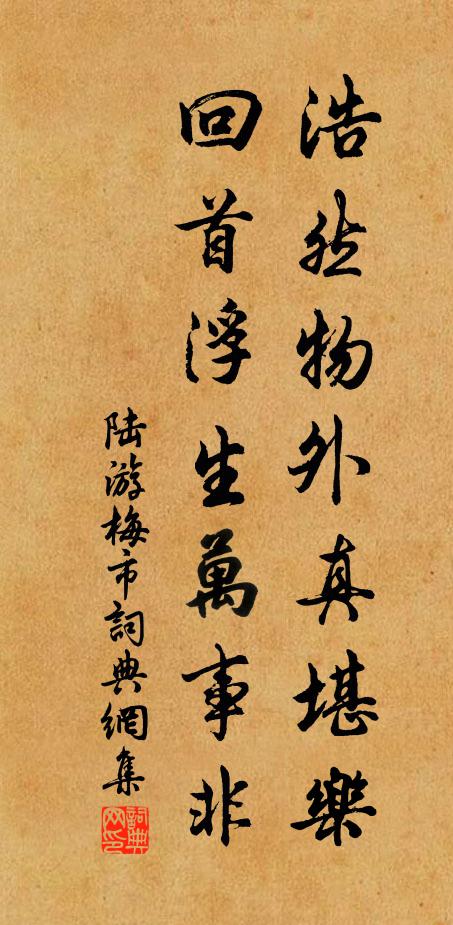 浩然物外真堪樂
回首浮生萬事非
陆游梅市詞典網集
詞典
网印